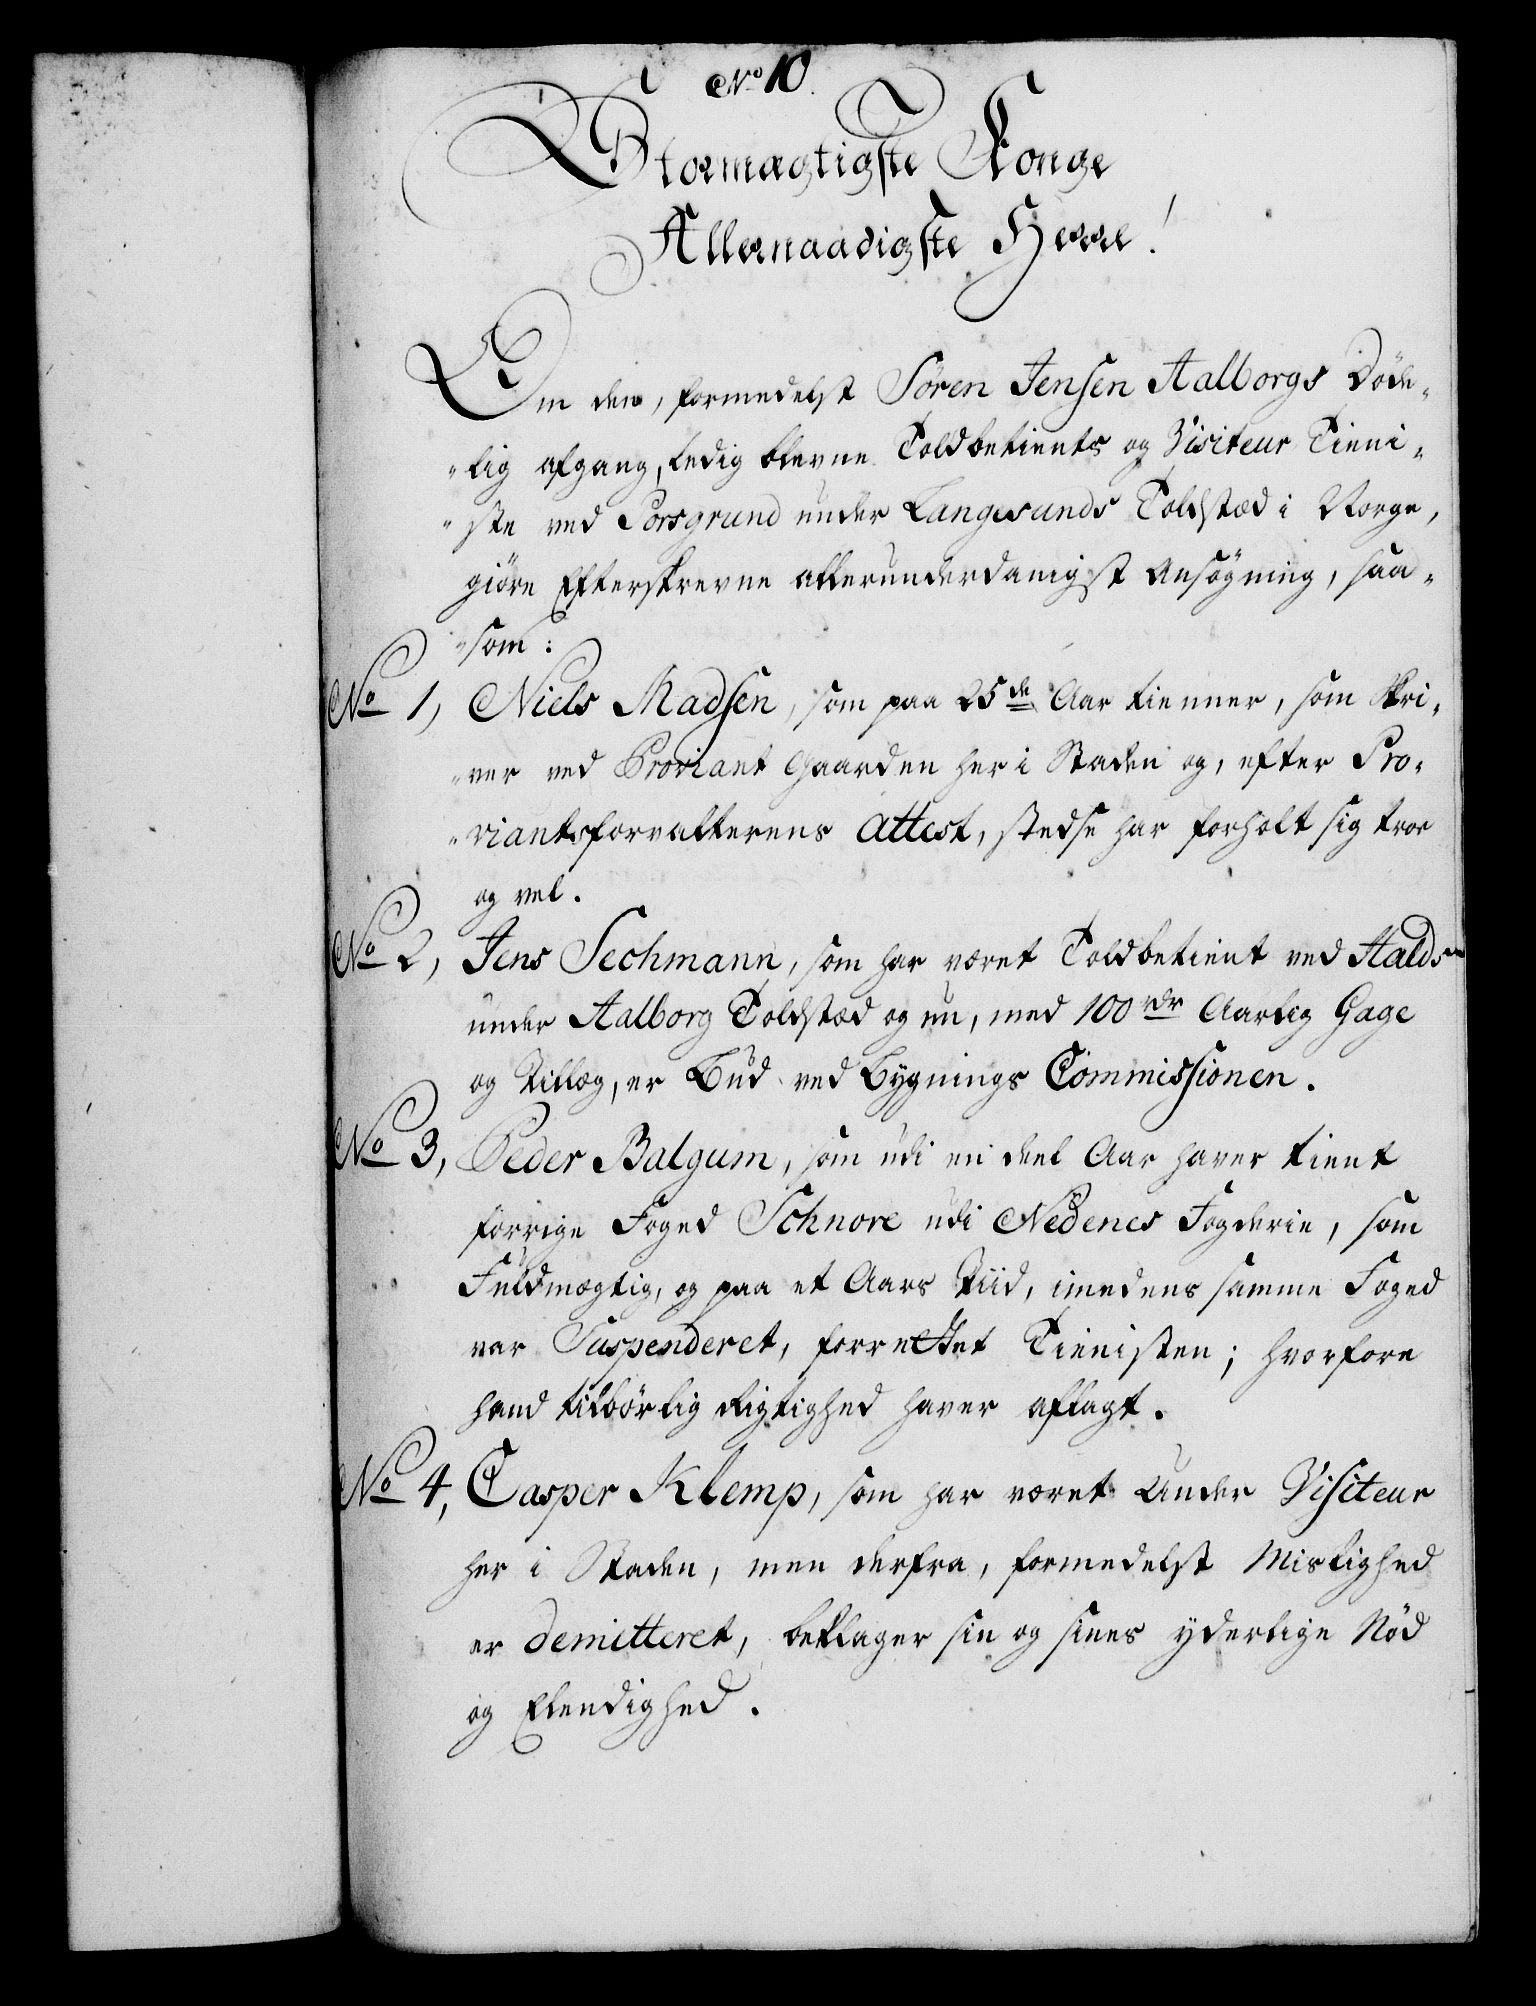 No 10.
Stormægtigste Konge
Allernaadigste Herre!
Om den, formedelst Sören Jensen Aalborgs Döde-
-lig afgang, ledig blevne Toldbetients og Visiteur Tieni-
-ste ved Porsgrund under Langesunds Toldstæd i Norge,
giöre Efterskrevne allerunderdanigst Ansögning, saa-
-som:
No 1, Niels Madsen, som paa 25de Aar tienner, som Skri-
-ver ved Proviant Gaarden her i Staden og, efter Pro-
-viantsforvalterens Attest, stedse har forholt sig troe
og vel.
No 2, Jens Sechmann, som har været Toldbetient ved Halds
under Aalborg Toldstæd og nu, med 100 rdr Aarlig Gage
og Tillæg, er Bud ved Bygnings Commissionen.
No 3, Peder Balgum, som udi en deel Aar haver tient
forrige Foged Schnore udi Nedenes Fogderie, som
Fuldmægtig, og paa et Aars Tiid, imedens samme Foged
var Suspenderet, forrettet Tienisten; hvorfore
hand tilbörlig Rigtighed haver aflagt.
No 4, Casper Klemp, som har været Under Visiteur
her i Staden, men derfra, formedelst Mislighed
er demitteret, beklager sin og sines yderlige Nöd
og Elendighed.